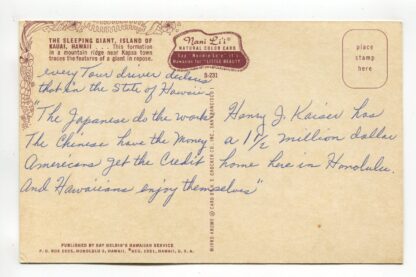 THE SLEEPING GIANT, ISLAND OF
KAUAI, HAWAII . . . This formation
in a mountain ridge near Kapaa town
traces the features of a giant in repose.
Nani Li'i
NATURAL COLOR CARD
Hawaiian for "LITTLE BEAUTY"
S-231
place
stamp
here
every Tour driver declares
that in the State of Hawaii-
"The Japanese do the work
The Chinese have the Money
Americans get the Credit
And Hawaiians enjoy themselves"
Henry J. Kaiser has
a 1 1/2 million dollar
home here in Honolulu.
PUBLISHED BY RAY HELBIG'S HAWAIIAN SERVICE
P. O. BOX 2835, HONOLULU 3, HAWAII
HAWAII, U. S. A.